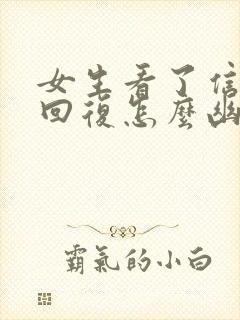 女生看了信
回復怎麼幽
霸氣的小白